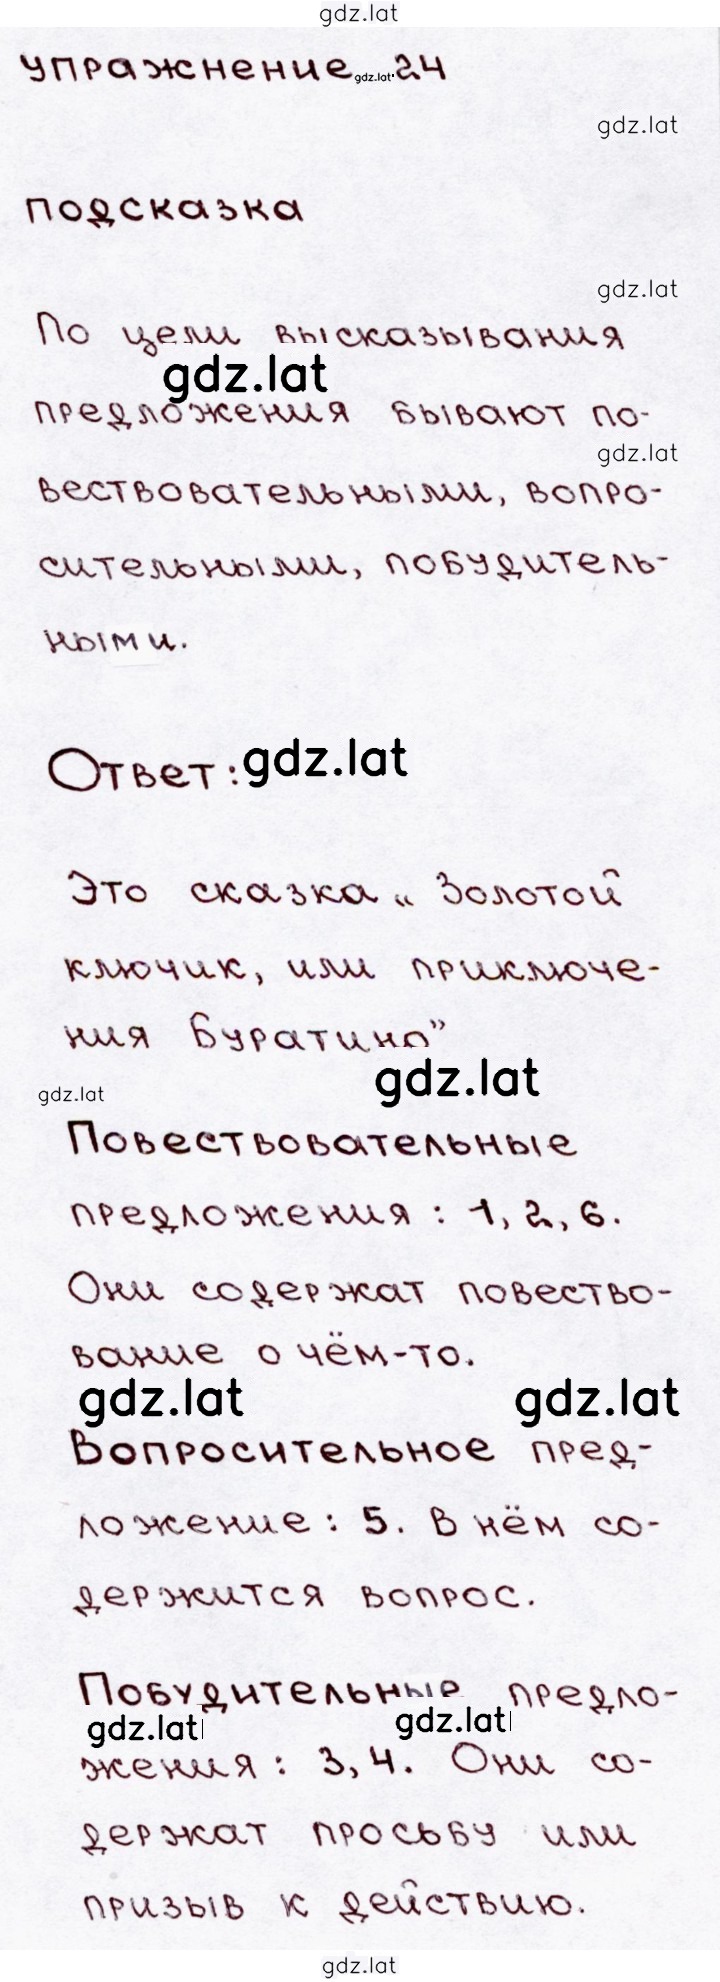 gdz.lat
упражнение gdz.lat 24
gdz.lat
подсказка
gdz.lat
По цели высказывания
gdz.lat
предложения бывают по-
gdz.lat
вествовательными, вопро-
сительными, побудитель-
ными.
Ответ: gdz.lat
Это сказка „Золотой
ключик, или приключе-
ния Буратино”
gdz.lat
gdz.lat
Повествовательные
предложения: 1, 2, 6.
Они содержат повество-
вание о чём-то.
gdz.lat gdz.lat
Вопросительное пред-
ложение: 5. В нём со-
держится вопрос.
Побудительные предло-
gdz.lat gdz.lat
жения: 3, 4. Они со-
держат просьбу или
призыв к действию.
gdz.lat